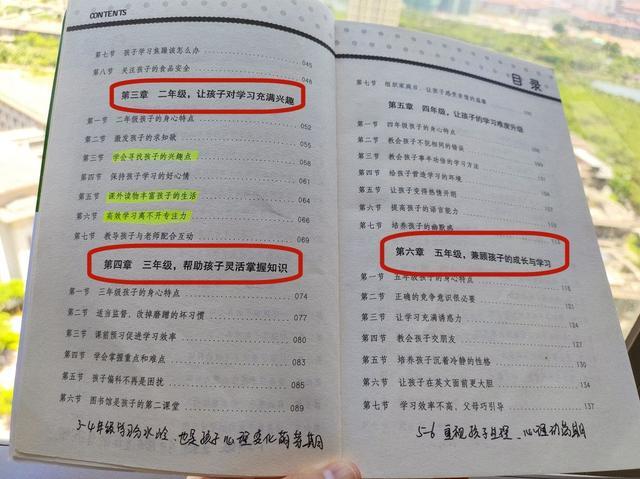 CONTENTS
第七节 孩子学习焦躁该怎么办 045
第八节 关注孩子的食品安全 048
第三章 二年级，让孩子对学习充满兴趣
第一节 二年级孩子的身心特点 052
第二节 激发孩子的求知欲 055
第三节 学会寻找孩子的兴趣点 058
第四节 保持孩子学习的好心情 061
第五节 课外读物丰富孩子的生活 064
第六节 高效学习离不开专注力 066
第七节 教导孩子与老师配合互动 069
第四章 三年级，帮助孩子灵活掌握知识
第一节 三年级孩子的身心特点 074
第二节 适当监督，改掉磨蹭的坏习惯 077
第三节 课前预习促进学习效率 080
第四节 学会掌握重点和难点 083
第五节 孩子偏科不再是困扰 085
第六节 图书馆是孩子的第二课堂 089
3-4年级 也是孩子心理变化萌芽期
目录
第七节 组织家庭日，让孩子感受亲情的温馨
第五章 四年级，让孩子的学习难度升级
第一节 四年级孩子的身心特点
第二节 教会孩子不犯相同的错误
第三节 教会孩子事半功倍的学习方法
第四节 给孩子营造学习的环境
第五节 让孩子变得热情开朗
第六节 提高孩子的语言能力
第七节 培养孩子的幽默感
第六章 五年级，兼顾孩子的成长与学习
第一节 五年级孩子的身心特点 118
第二节 正确的竞争意识很必要 121
第三节 让学习充满诱惑力 124
第四节 教会孩子交朋友 127
第五节 培养孩子沉着冷静的性格 130
第六节 让孩子在英文面前更大胆 134
第七节 学习效率不高，父母巧引导 137
5-6 重视孩子生理、心理